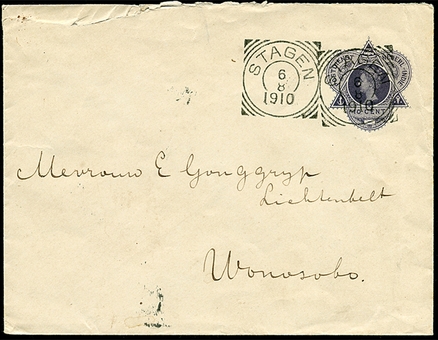 STAGEN
6
8
1910
STAGEN
6
8
1910
CENT
Mevrouw E Gonggryp
Lichtenbelt
Wonosobo.